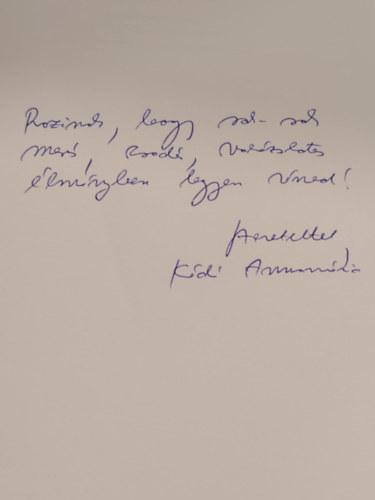 Rozinak, hogy sok-sok
mesés, csodás, varázslatos
élményben legyen részed!
Szeretettel,
Kádi Annamária